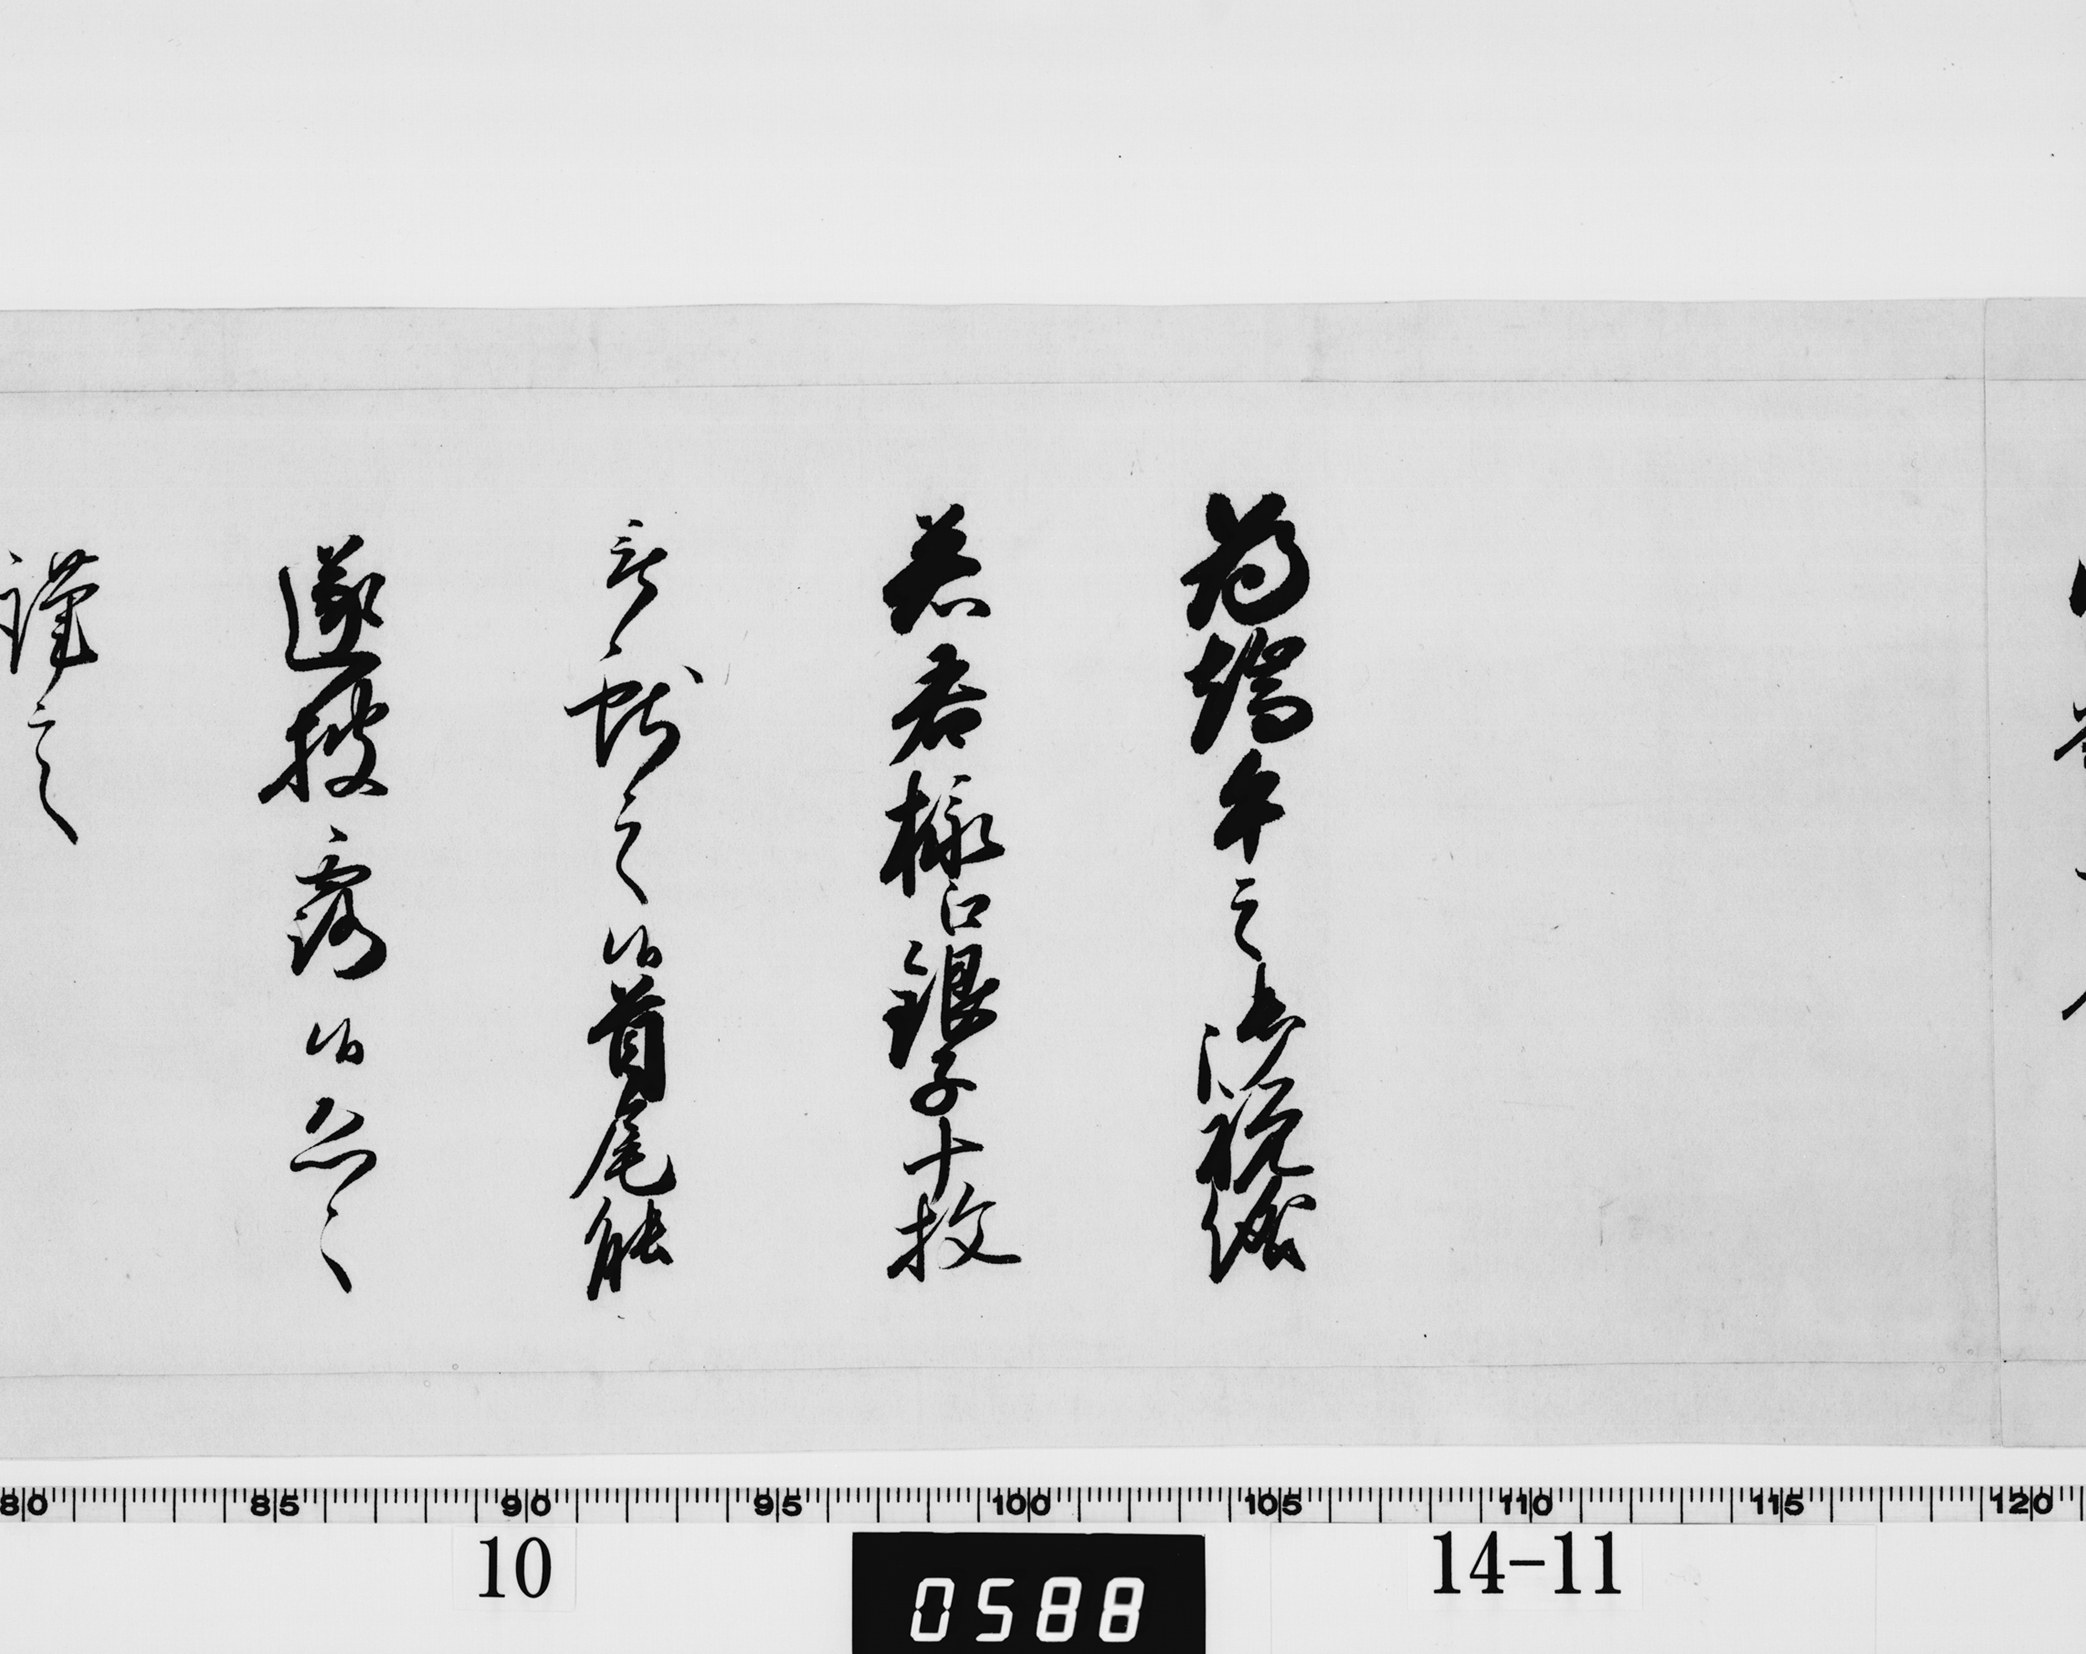 為端午之御祝儀
若君様江銀子十枚
被献之候首尾能
遂披露候恐々
謹言
80 85 90 95 100 105 110 115 120
10
0588
14-11